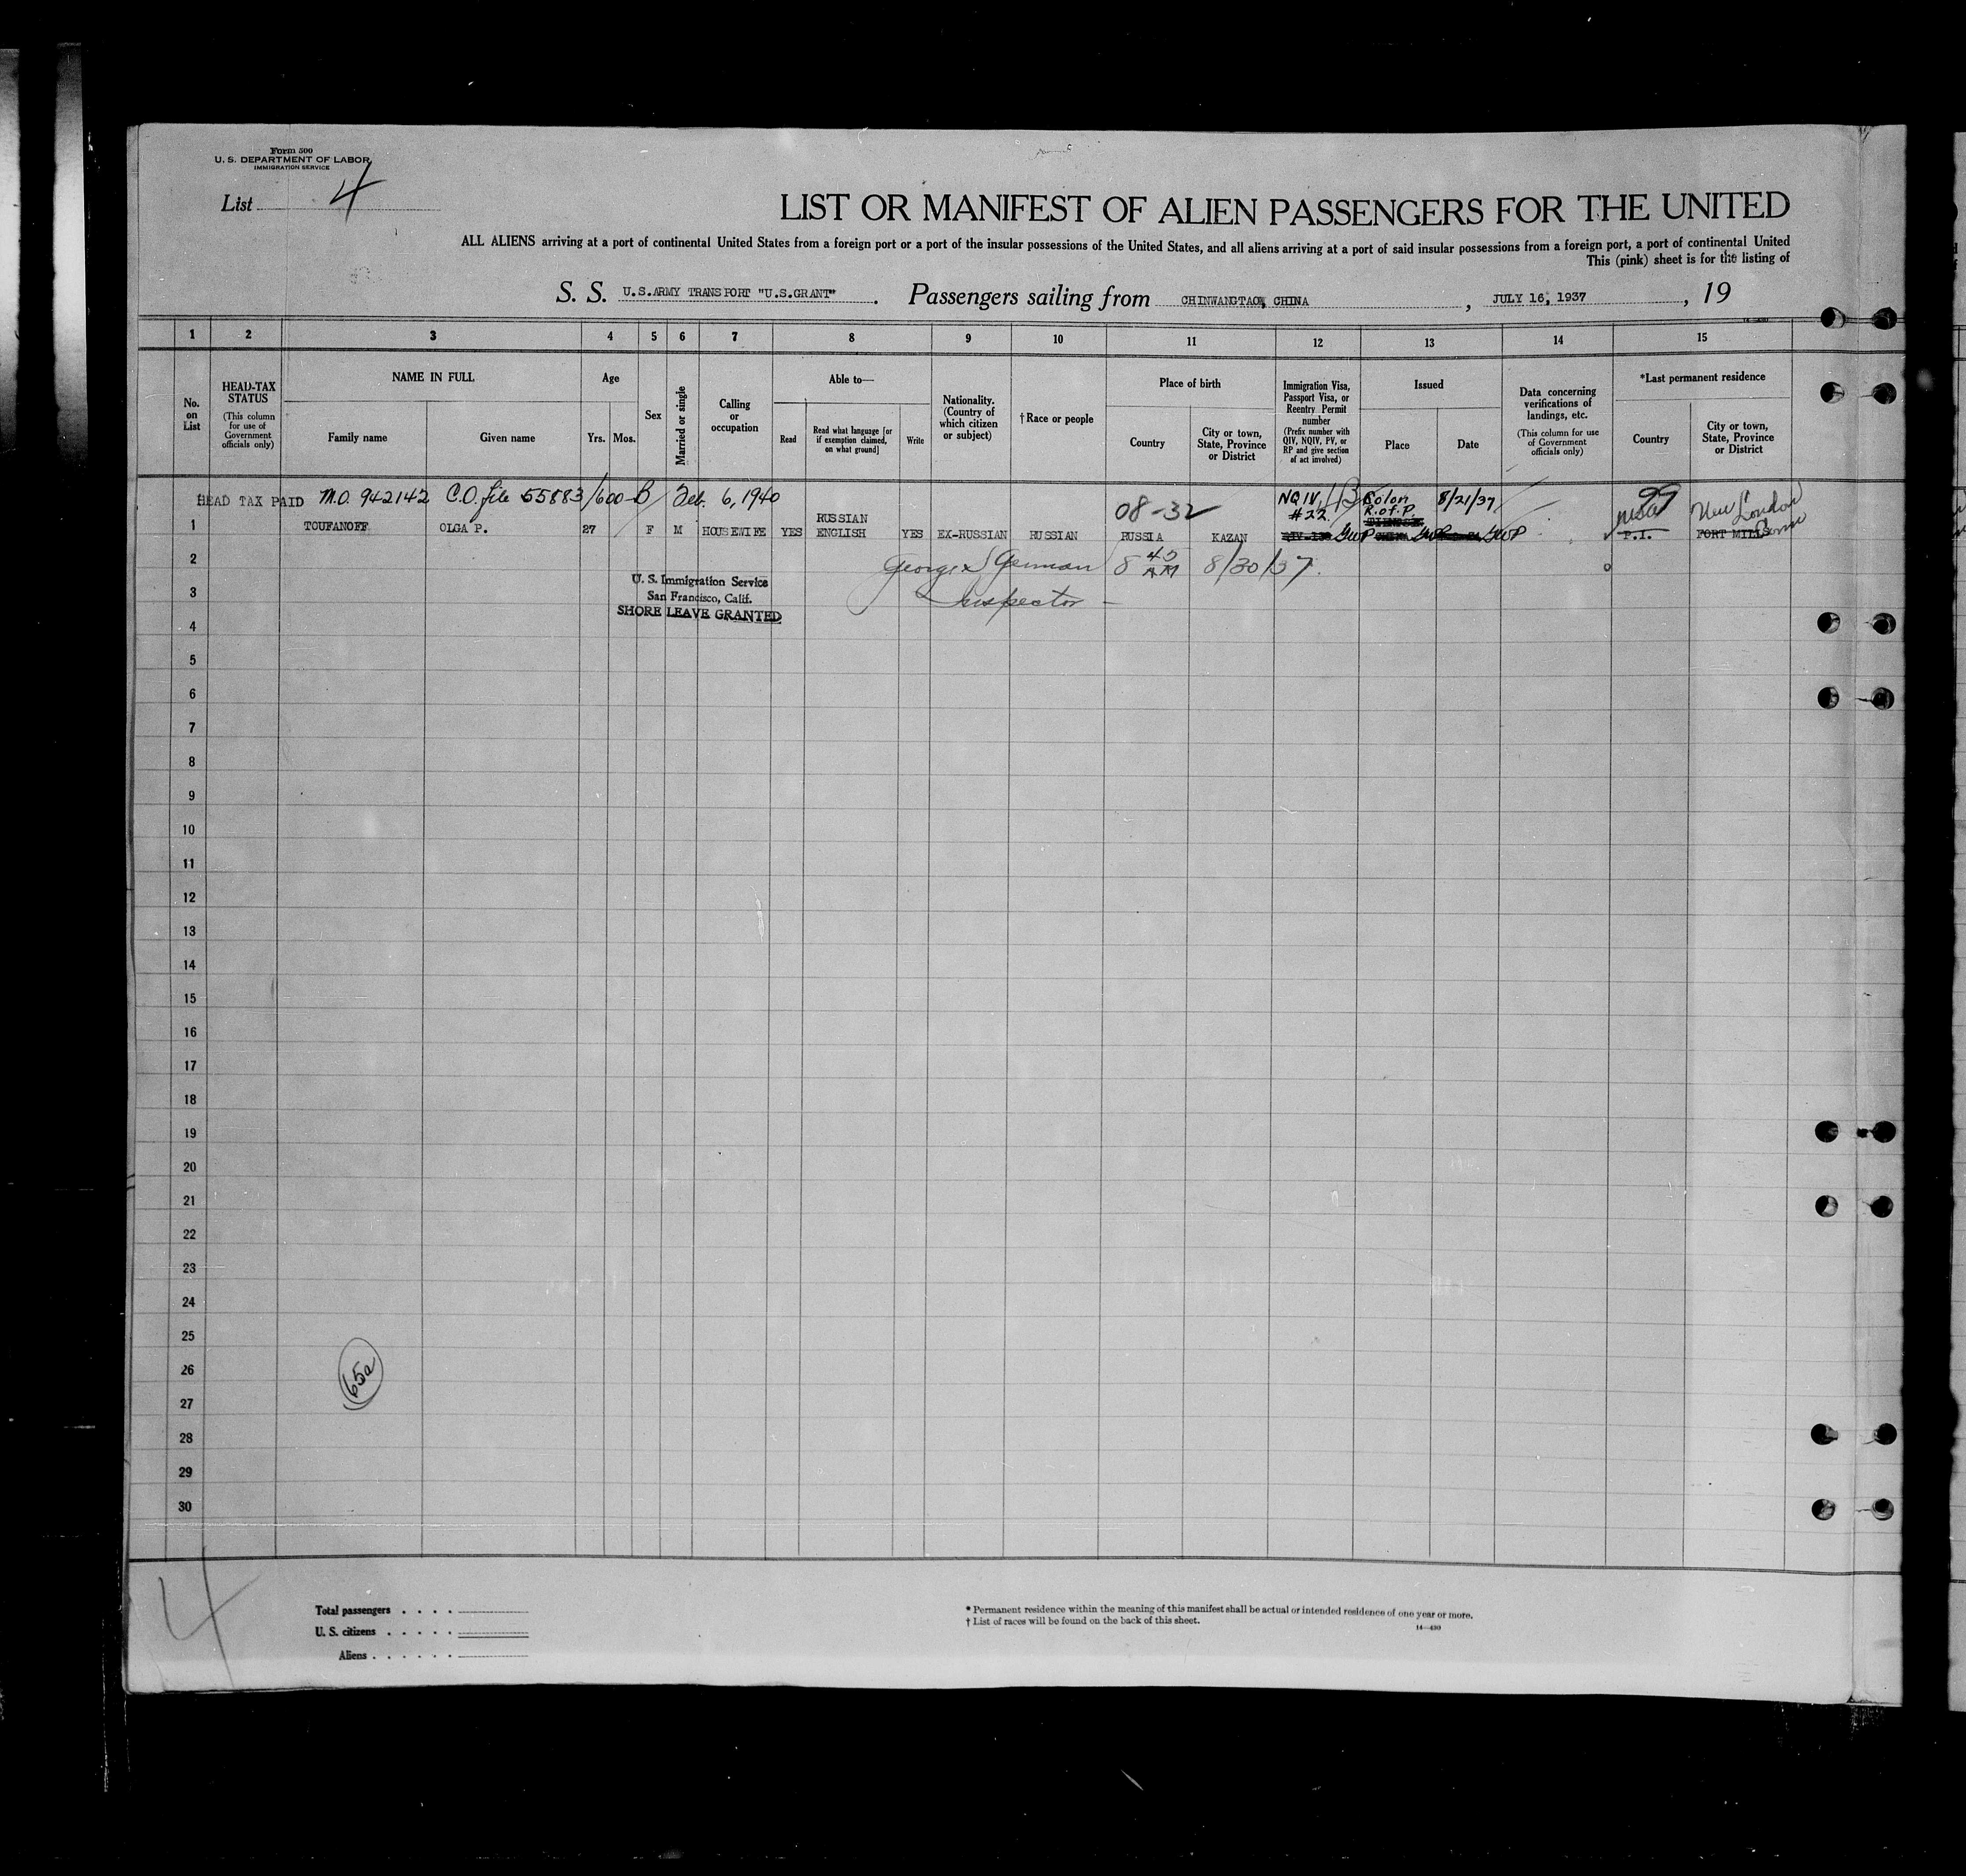 Form 500
U. S. DEPARTMENT OF LABOR
IMMIGRATION SERVICE
List 4
LIST OR MANIFEST OF ALIEN PASSENGERS FOR THE UNITED
ALL ALIENS arriving at a port of continental United States from a foreign port or a port of the insular possessions of the United States, and all aliens arriving at a port of said insular possessions from a foreign port, a port of continental United
This (pink) sheet is for the listing of
S. S. U.S.ARMY TRANSPORT "U.S.GRANT" . Passengers sailing from CHINWANGTAO, CHINA , JULY 16, 1937 , 19
1 2 3 4 5 6 7 8 9 10 11 12 13 14 15
No. on List
HEAD-TAX STATUS
(This column for use of Government officials only)
NAME IN FULL
Family name
Given name
Age
Yrs. Mos.
Sex
Married or single
Calling or occupation
Able to—
Read
Read what language [or if exemption claimed, on what ground]
Write
Nationality. (Country of which citizen or subject)
† Race or people
Place of birth
Country
City or town, State, Province or District
Immigration Visa, Passport Visa, or Reentry Permit number
(Prefix number with QIV, NQIV, PV, or RP and give section of act involved)
Issued
Place
Date
Data concerning verifications of landings, etc.
(This column for use of Government officials only)
*Last permanent residence
Country
City or town, State, Province or District
HEAD TAX PAID M.O. 942142 C.O. file 55883/600-B Feb. 6, 1940
08-32
NQIV #22
Colon R. of P.
8/21/37
99
New London Conn
1 TOUFANOFF OLGA P. 27 F M HOUSEWIFE YES RUSSIAN ENGLISH YES EX-RUSSIAN RUSSIAN RUSSIA KAZAN P.I. FORT MILLS
2 George S German 8 45 AM 8/30/37.
Inspector
U. S. Immigration Service
San Francisco, Calif.
SHORE LEAVE GRANTED
3
4
5
6
7
8
9
10
11
12
13
14
15
16
17
18
19
20
21
22
23
24
25
26
27
28
29
30
65a
4
Total passengers . . . .
U. S. citizens . . . . .
Aliens . . . . . .
* Permanent residence within the meaning of this manifest shall be actual or intended residence of one year or more.
† List of races will be found on the back of this sheet.
14—430